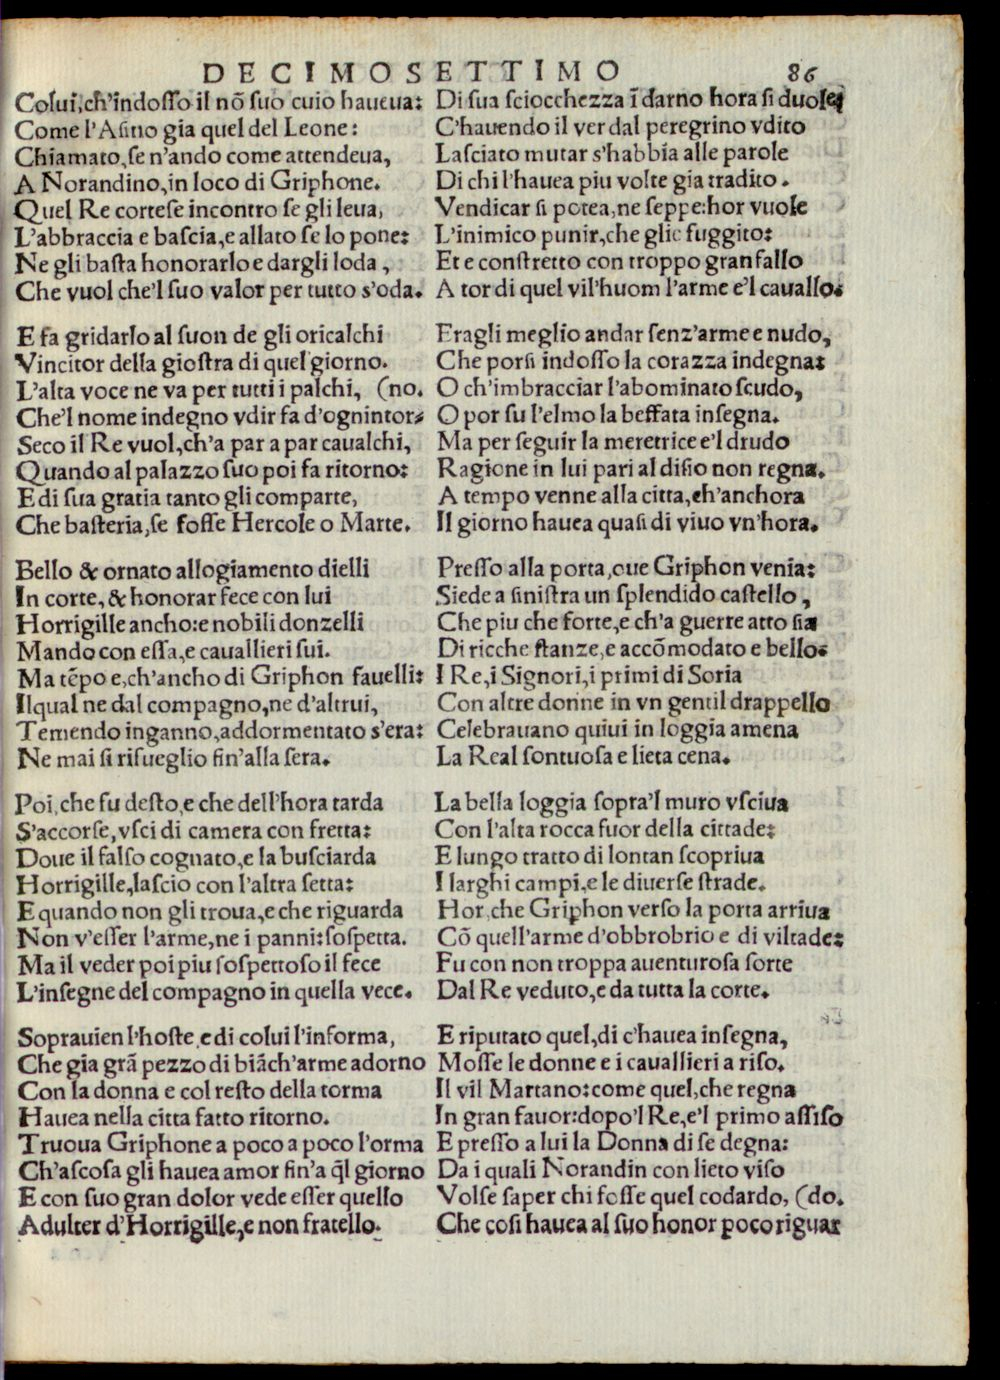 DECIMOSETTIMO 86
Colui, ch'indosso il nõ suo cuio haueua:
Come l'Asino gia quel del Leone:
Chiamato, se n'ando come attendeua,
A Norandino, in loco di Griphone.
Quel Re cortese incontro se gli leua,
L'abbraccia e bascia, e allato se lo pone:
Ne gli basta honorarlo e dargli loda,
Che vuol che'l suo valor per tutto s'oda.
E fa gridarlo al suon de gli oricalchi
Vincitor della giostra di quel giorno.
L'alta voce ne va per tutti i palchi, (no.
Che'l nome indegno vdir fa d'ognintor-
Seco il Re vuol, ch'a par a par caualchi,
Quando al palazzo suo poi fa ritorno:
E di sua gratia tanto gli comparte,
Che basteria, se fosse Hercole o Marte.
Bello & ornato allogiamento dielli
In corte, & honorar fece con lui
Horrigille ancho: e nobili donzelli
Mando con essa, e cauallieri sui.
Ma tẽpo e, ch'ancho di Griphon fauelli:
Ilqual ne dal compagno, ne d'altrui,
Temendo inganno, addormentato s'era:
Ne mai si risueglio fin'alla sera.
Poi, che fu desto, e che dell'hora tarda
S'accorse, vsci di camera con fretta:
Doue il falso cognato, e la busciarda
Horrigille, lascio con l'altra setta:
E quando non gli troua, e che riguarda
Non v'esser l'arme, ne i panni: sospetta.
Ma il veder poi piu sospettoso il fece
L'insegne del compagno in quella vece.
Soprauien l'hoste, e di colui l'informa,
Che gia grã pezzo di biãch'arme adorno
Con la donna e col resto della torma
Hauea nella citta fatto ritorno.
Truoua Griphone a poco a poco l'orma
Ch'ascosa gli hauea amor fin'a q̃l giorno
E con suo gran dolor vede esser quello
Adulter d'Horrigille, e non fratello.
Di sua sciocchezza ĩdarno hora si duole,
C'hauendo il ver dal peregrino vdito
Lasciato mutar s'habbia alle parole
Di chi l'hauea piu volte gia tradito.
Vendicar si potea, ne seppe: hor vuole
L'inimico punir, che glie fuggito:
Et e constretto con troppo gran fallo
A tor di quel vil'huom l'arme e'l cauallo.
Eragli meglio andar senz'arme e nudo,
Che porsi indosso la corazza indegna:
O ch'imbracciar l'abominato scudo,
O por su l'elmo la beffata insegna.
Ma per seguir la meretrice e'l drudo
Ragione in lui pari al disio non regna.
A tempo venne alla citta, ch'anchora
Il giorno hauea quasi di viuo vn'hora.
Presso alla porta, oue Griphon venia:
Siede a sinistra un splendido castello,
Che piu che forte, e ch'a guerre atto sia
Di ricche stanze, e accõmodato e bello.
I Re, i Signori, i primi di Soria
Con altre donne in vn gentil drappello
Celebrauano quiui in loggia amena
La Real sontuosa e lieta cena.
La bella loggia sopra'l muro vsciua
Con l'alta rocca fuor della cittade:
E lungo tratto di lontan scopriua
I larghi campi, e le diuerse strade.
Hor, che Griphon verso la porta arriua
Cõ quell'arme d'obbrobrio e di viltade:
Fu con non troppa auenturosa sorte
Dal Re veduto, e da tutta la corte.
E riputato quel, di c'hauea insegna,
Mosse le donne e i cauallieri a riso.
Il vil Martano: come quel, che regna
In gran fauor: dopo'l Re, e'l primo assiso
E presso a lui la Donna di se degna:
Da i quali Norandin con lieto viso
Volse saper chi fosse quel codardo, (do.
Che cosi hauea al suo honor poco riguar